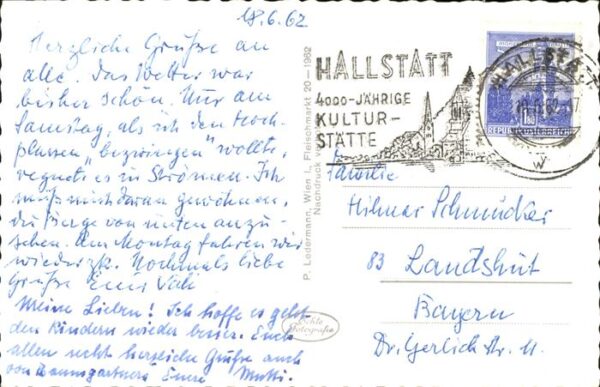 18.6.62
Herzliche Grüße an
alle. Das Wetter war
bisher schön. Nur am
Samstag, als ich den Hoch-
"bezwingen" wollte,
regnete es in Strömen. Ich
muß mich daran gewöhnen,
die Berge von unten anzu-
sehen. Am Montag fahren wir
wieder zk. Nochmals liebe
Grüße Euer Vati
Meine Lieben! Ich hoffe es geht
den Kindern wieder besser. Euch
allen recht herzliche Grüße auch
von Baumgartners Eure Mutti.
P. Ledermann, Wien I., Fleischmarkt 20 – 1962
Nachdruck
Echte
Fotografie
HALLSTATT
4000-JÄHRIGE
KULTUR-
STÄTTE
HALLSTATT
62-17
REPUBLIK ÖSTERREICH
Familie
Hilmar Schmücker
83 Landshut
Bayern
Dr. Gerlich Str. 11